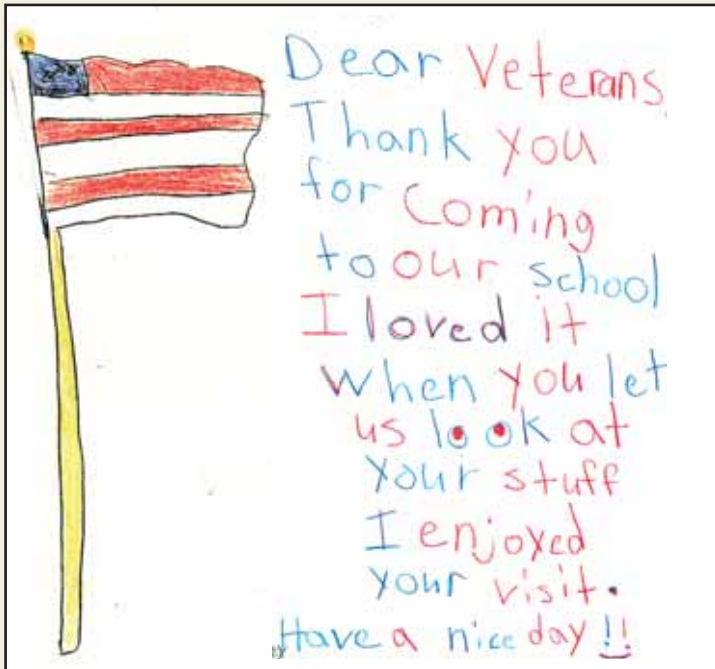 Dear Veterans,
Thank you
for Coming
to our school
I loved it
When you let
us look at
your stuff
I enjoyed
your visit.
Have a nice day !!